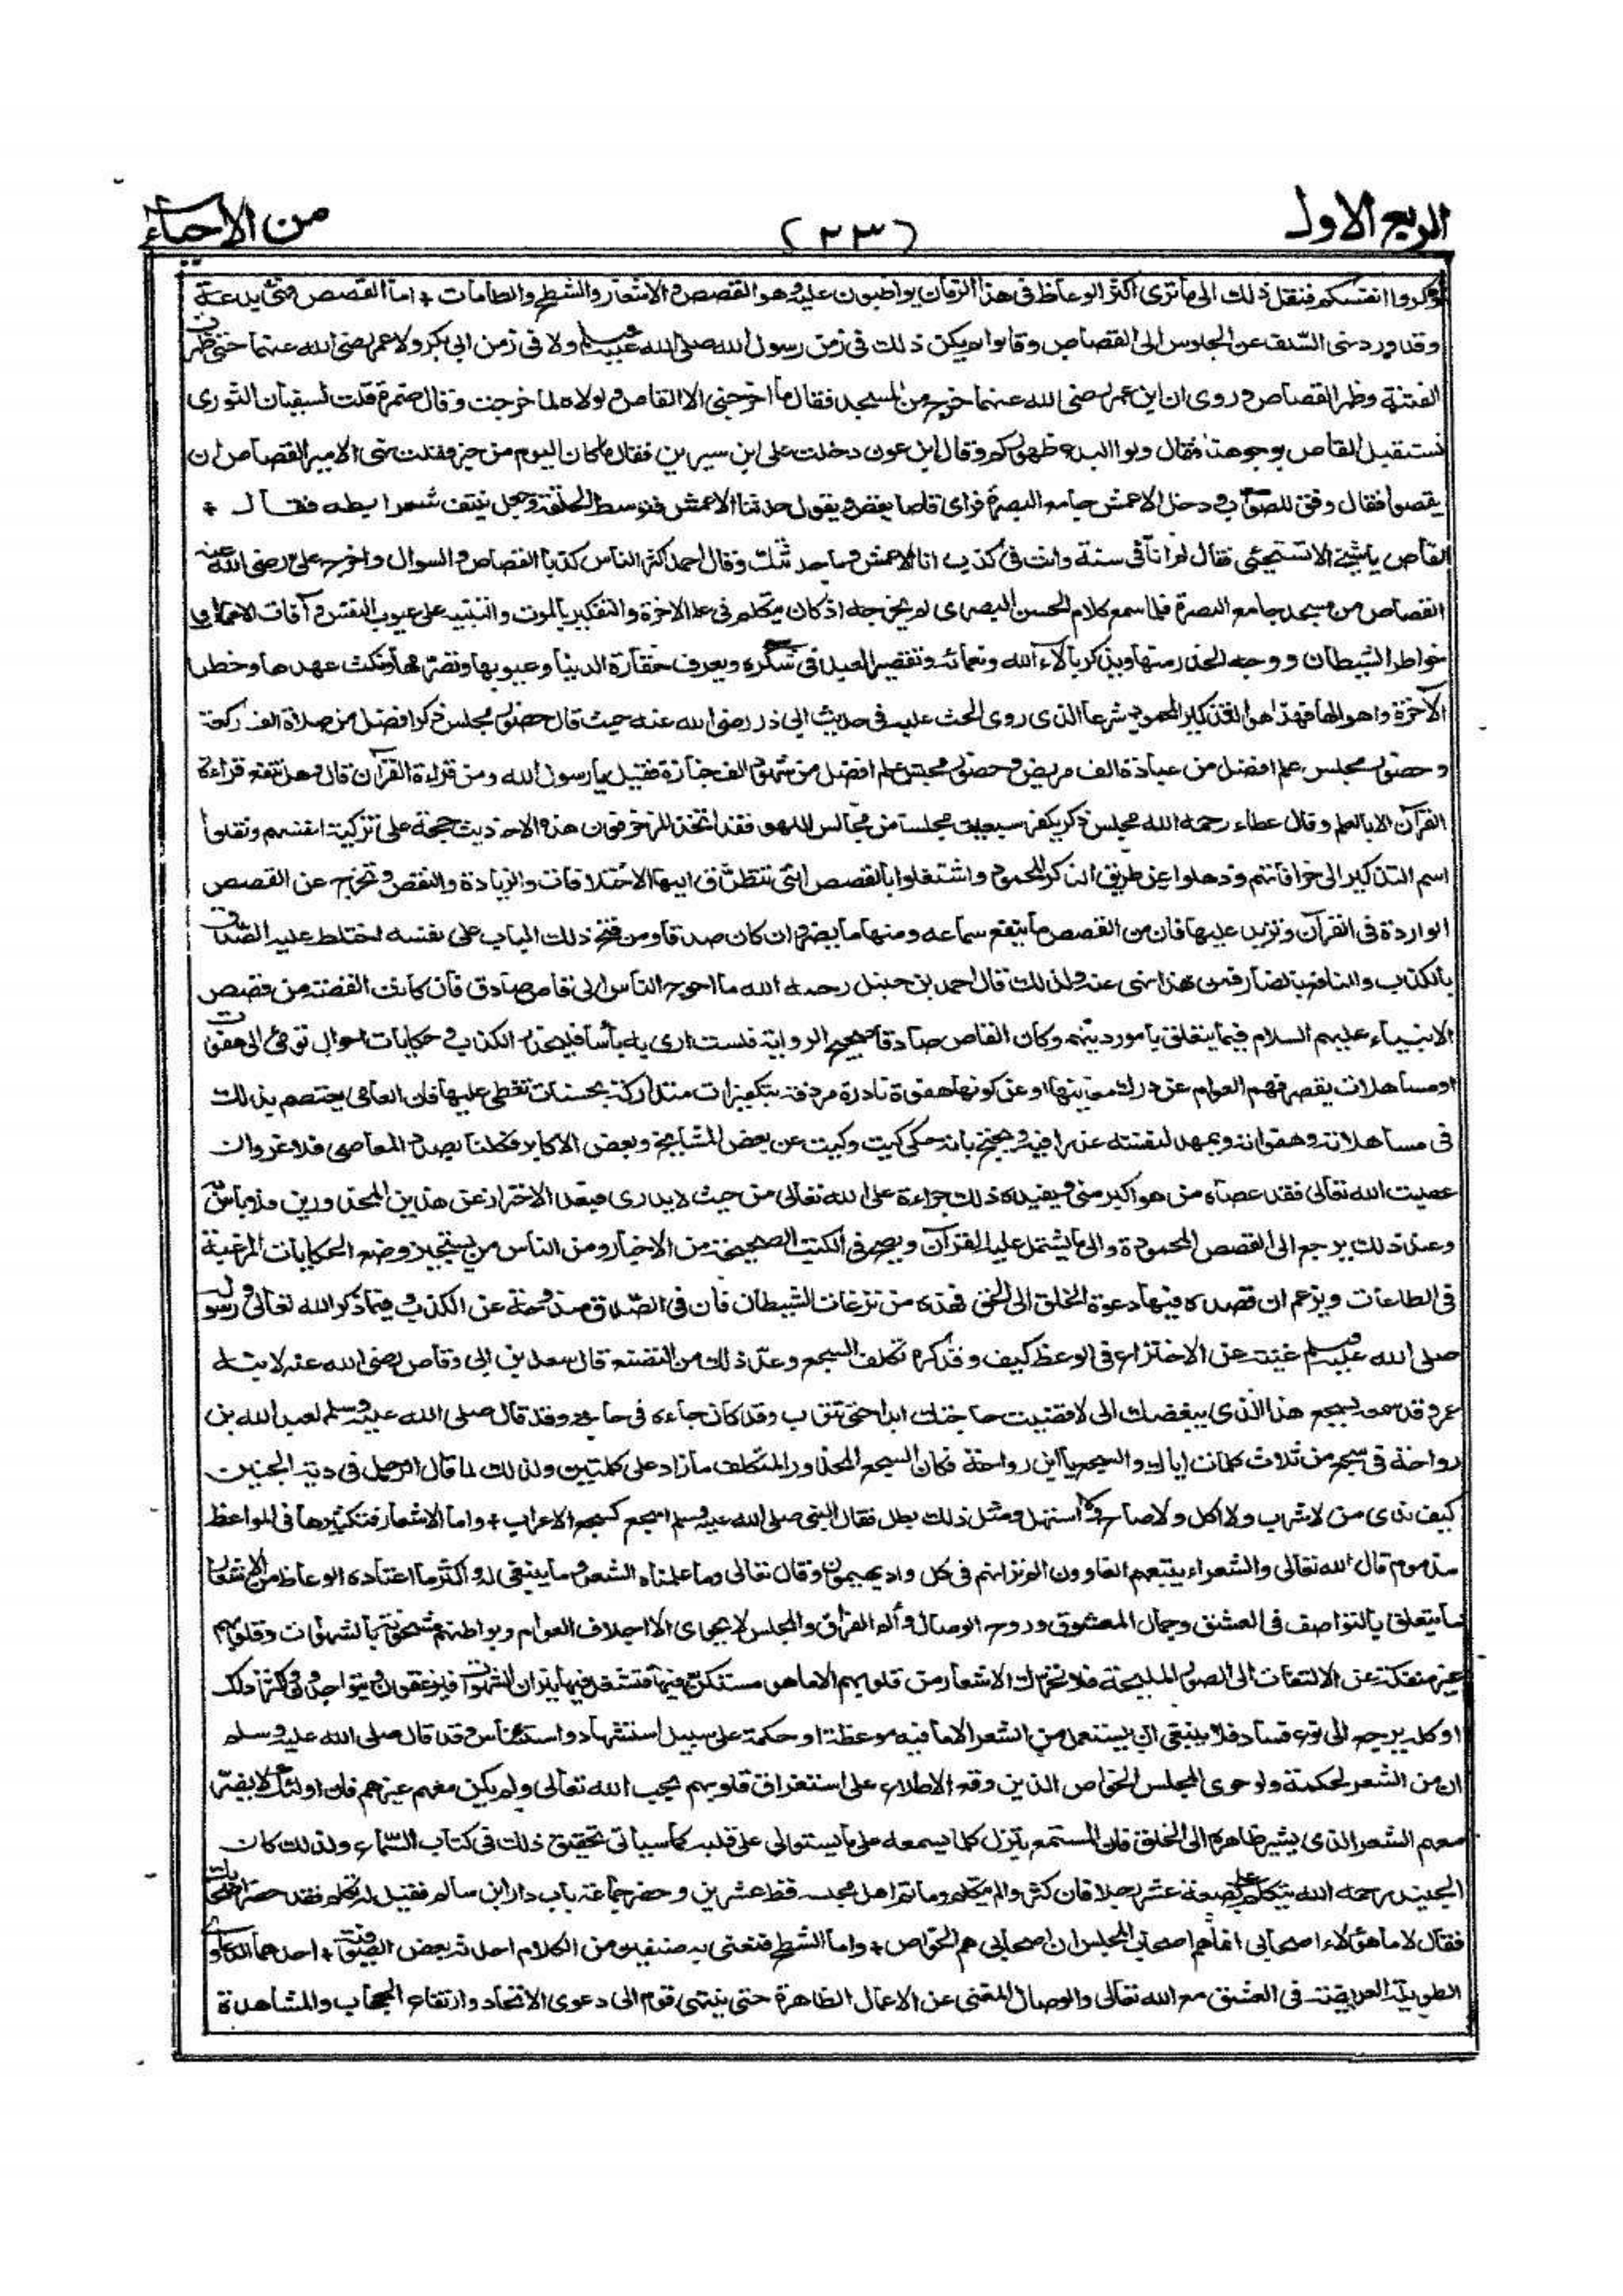 الربع الاول
(٢٣)
من الاحياء
وذكروا انفسكم فنقل ذلك الى ما ترى اكثر الوعاظ فى هذا الزمان يواظبون عليه وهو القصص والاشعار والشطح والطامات + اما القصص فهى بدعة
وقد ورد نهى السلف عن الجلوس الى القصاص وقالوا لم يكن ذلك فى زمن رسول الله صلى الله عليه وسلم ولا فى زمن ابى بكر ولا عمر رضى الله عنهما حتى ظهرت
الفتنة وظهر القصاص وروى ان ابن عمر رضى الله عنهما خرج من المسجد فقال ما اخرجنى الا القاص ولولاه لما خرجت وقال ضمرة قلت لسفيان الثورى
نستقبل القاص بوجوهنا فقال ولوا البدع ظهوركم وقال ابن عون دخلت على ابن سيرين فقال ما كان اليوم من خبر فقلت نهى الامير القصاص ان
يقصوا فقال وفق للصواب ودخل الاعمش جامع البصرة فراى قاصا يقص ويقول حدثنا الاعمش فتوسط الحلقة وجعل ينتف شعر ابطه فقال +
القاص يا شيخ الا تستحيى فقال لم انا فى سنة وانت فى كذب انا الاعمش وما حدثتك وقال احمد اكثر الناس كذبا القصاص والسوال واخرج على رضى الله عنه
القصاص من مسجد جامع البصرة فلما سمع كلام الحسن البصرى لم يخرجه اذ كان يتكلم فى علم الاخرة والتفكير بالموت والتنبيه على عيوب النفس وآفات الاعمال و
خواطر الشيطان ووجه الحذر منها ويذكر بالاء الله ونعمائه وتقصير العبد فى شكره ويعرف حقارة الدنيا وعيوبها وتصرمها ونكث عهدها وخطر
الآخرة واهوالها فهذا هو التذكير المحمود شرعا الذى روى الحث عليه فى حديث ابى ذر رضى الله عنه حيث قال حضور مجلس ذكر افضل من صلاة الف ركعة
وحضور مجلس علم افضل من عيادة الف مريض وحضور مجلس علم افضل من شهود الف جنازة فقيل يا رسول الله ومن قراءة القرآن قال وهل تنفع قراءة
القرآن الا بالعلم وقال عطاء رحمه الله مجلس ذكر يكفر سبعين مجلسا من مجالس اللهو فقد اتخذ المزخرفون هذه الاحاديث حجة على تزكية انفسهم ونقلوا
اسم التذكير الى خرافاتهم وذهلوا عن طريق الذكر المحمود واشتغلوا بالقصص التى تتطرق اليها الاختلافات والزيادة والنقص وتخرج عن القصص
الواردة فى القرآن وتزيد عليها فان من القصص ما ينفع سماعه ومنها ما يضر وان كان صدقا ومن فتح ذلك الباب على نفسه اختلط عليه الصدق
بالكذب والنافع بالضار فمن هذا نهى عنه ولذلك قال احمد بن حنبل رحمه الله ما احوج الناس الى قاص صادق فان كانت القصة من قصص
الانبياء عليهم السلام فيما يتعلق بامور دينهم وكان القاص صادقا صحيح الرواية فلست ارى به باسا فليحذر الكذب وحكايات احوال تومئ الى هفوات
او مساهلات يقصر فهم العوام عن درك معانيها او عن كونها هفوة نادرة مردفة بتكفيرات متداركة بحسنات تغطى عليها فان العامى يعتصم بذلك
فى مساهلاته وهفواته ويمهد لنفسه عذرا فيه ويحتج بانه حكى كيت وكيت عن بعض المشايخ وبعض الاكابر فكلنا بصدد المعاصى فلا غرو ان
عصيت الله تعالى فقد عصاه من هو اكبر منى ويفيده ذلك جراءة على الله تعالى من حيث لا يدرى فبعد الاحتراز عن هذين المحذورين فلا باس به
وعند ذلك يرجع الى القصص المحمودة والى ما يشتمل عليه القرآن ويصح فى الكتب الصحيحة من الاخبار ومن الناس من يستجيز وضع الحكايات المرغبة
فى الطاعات ويزعم ان قصده فيها دعوة الخلق الى الحق فهذه من نزغات الشيطان فان فى الصدق مندوحة عن الكذب وفيما ذكر الله تعالى ورسوله
صلى الله عليه وسلم غنية عن الاختراع فى الوعظ كيف وقد كره تكلف السجع وعد ذلك من التصنع قال سعد بن ابى وقاص رضى الله عنه لابنه
عمر وقد سمعه يسجع هذا الذى يبغضك الى لا قضيت حاجتك ابدا حتى تتوب وقد كان جاءه فى حاجة وقد قال صلى الله عليه وسلم لعبد الله بن
رواحة فى سجع من ثلاث كلمات اياك والسجع يا ابن رواحة فكان السجع المحذور المتكلف ما زاد على كلمتين ولذلك لما قال الرجل فى دية الجنين
كيف ندى من لا شرب ولا اكل ولا صاح ولا استهل ومثل ذلك يطل فقال النبى صلى الله عليه وسلم اسجع كسجع الاعراب + واما الاشعار فتكثيرها فى المواعظ
مذموم قال الله تعالى والشعراء يتبعهم الغاوون الم تر انهم فى كل واد يهيمون وقال تعالى وما علمناه الشعر وما ينبغى له واكثر ما اعتاده الوعاظ من الاشعار
ما يتعلق بالتواصف فى العشق وجمال المعشوق وروح الوصال والم الفراق والمجلس لا يحوى الا اجلاف العوام وبواطنهم مشحونة بالشهوات وقلوبهم
غير منفكة عن الالتفات الى الصور المليحة فلا تحرك الاشعار من قلوبهم الا ما هو مستكن فيها فتشتعل فيها نيران الشهوات فيزعقون ويتواجدون واكثر ذلك
او كله يرجع الى نوع فساد فلا ينبغى ان يستعمل من الشعر الا ما فيه موعظة او حكمة على سبيل استشهاد واستئناس وقد قال صلى الله عليه وسلم
ان من الشعر لحكمة ولو حوى المجلس الخواص الذين وقع الاطلاع على استغراق قلوبهم بحب الله تعالى ولم يكن معهم غيرهم فان اولئك لا يضر
معهم الشعر الذى يشير ظاهره الى الخلق فان المستمع ينزل كل ما يسمعه على ما يستولى على قلبه كما سياتى تحقيق ذلك فى كتاب السماع ولذلك كان
الجنيد رحمه الله يتكلم على بضعة عشر رجلا فان كثروا لم يتكلم وما تم اهل مجلسه قط عشرين وحضر جماعة باب دار ابن سالم فقيل له تكلم فقد حضر اصحابك
فقال لا ما هؤلاء اصحابى انما هم اصحاب المجلس ان اصحابى هم الخواص + واما الشطح فنعنى به صنفين من الكلام احدثه بعض الصوفية + احدهما الدعاوى
الطويلة العريضة فى العشق مع الله تعالى والوصال المغنى عن الاعمال الظاهرة حتى ينتهى قوم الى دعوى الاتحاد وارتفاع الحجاب والمشاهدة